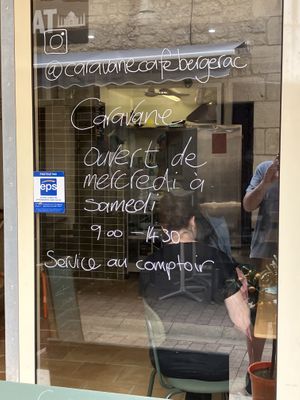 AT
@caravanecafebergerac
Caravane
ouvert de
mercredi à
samedi
9.00 - 14.30
Service au comptoir
eps